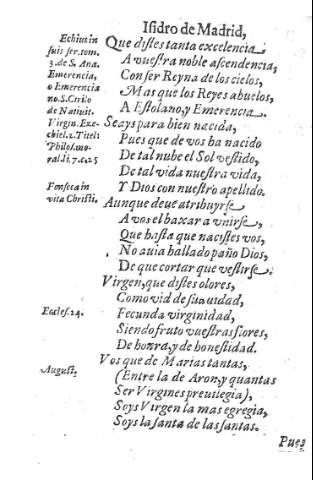 Isidro de Madrid,
Echius in
suis ser. tom.
3. de S. Ana.
Emerencia,
o Emerencia
no. S. Cirilo
de Nativit.
Virgin. Eze-
chiel. 2. Titel:
Philos. mo-
ral. li. 7. c. 25
Fonseca in
vita Christi.
Eccles. 24.
August.
Que distes tanta excelencia
A vuestra noble ascendencia,
Con ser Reyna de los cielos,
Mas que los Reyes abuelos,
A Estolano, y Emerencia.
Seays para bien nacida,
Pues que de vos ha nacido
De tal nube el Sol vestido,
De tal vida nuestra vida,
Y Dios con nuestro apellido.
Aunque deue atribuyrse
A vos el baxar a vnirse,
Que hasta que nacistes vos,
No auia hallado paño Dios,
De que cortar que vestirse.
Virgen, que distes olores,
Como vid de suauidad,
Fecunda virginidad,
Siendo fruto vuestras flores,
De honra, y de honestidad.
Vos que de Marias tantas,
(Entre la de Aron, y quantas
Ser Virgines preuilegia),
Soys Virgen la mas egregia,
Soys la santa de las santas.
Pues